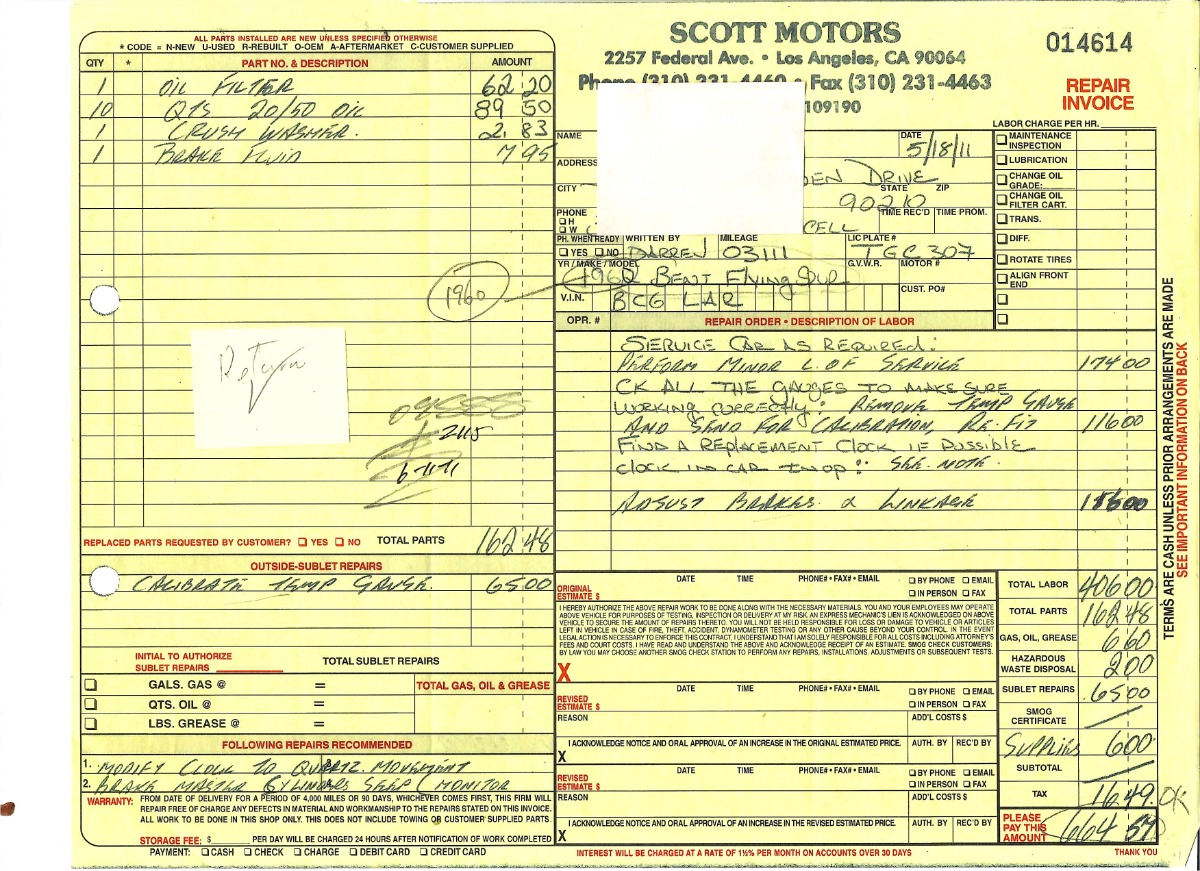 ALL PARTS INSTALLED ARE NEW UNLESS SPECIFIED OTHERWISE
* CODE = N-NEW U-USED R-REBUILT O-OEM A-AFTERMARKET C-CUSTOMER SUPPLIED
QTY * PART NO. & DESCRIPTION AMOUNT
1 OIL FILTER 62 20
10 QTS 20/50 OIL 89 50
1 CRUSH WASHER. 2. 83
1 BRAKE FLUID 7 95
1960
Return
2115
6-11-11
REPLACED PARTS REQUESTED BY CUSTOMER? YES NO TOTAL PARTS 162 48
OUTSIDE-SUBLET REPAIRS
CALIBRATE TEMP GAUGE. 65 00
INITIAL TO AUTHORIZE
SUBLET REPAIRS TOTAL SUBLET REPAIRS
GALS. GAS @ = TOTAL GAS, OIL & GREASE
QTS. OIL @ =
LBS. GREASE @ =
FOLLOWING REPAIRS RECOMMENDED
1. MODIFY CLOCK TO QUARTZ. MOVEMENT
2. BRAKE MASTER CYLINDERS SEEP (MONITOR
WARRANTY: FROM DATE OF DELIVERY FOR A PERIOD OF 4,000 MILES OR 90 DAYS, WHICHEVER COMES FIRST, THIS FIRM WILL
REPAIR FREE OF CHARGE ANY DEFECTS IN MATERIAL AND WORKMANSHIP TO THE REPAIRS STATED ON THIS INVOICE.
ALL WORK TO BE DONE IN THIS SHOP ONLY. THIS DOES NOT INCLUDE TOWING OR CUSTOMER SUPPLIED PARTS.
STORAGE FEE: $ PER DAY WILL BE CHARGED 24 HOURS AFTER NOTIFICATION OF WORK COMPLETED
PAYMENT: CASH CHECK CHARGE DEBIT CARD CREDIT CARD
SCOTT MOTORS
2257 Federal Ave. • Los Angeles, CA 90064
Phone (310) 231-4460 • Fax (310) 231-4463
109190
014614
REPAIR
INVOICE
LABOR CHARGE PER HR.
NAME DATE 5/18/11
ADDRESS DEN DRIVE
CITY STATE ZIP 90210
PHONE H W CELL TIME REC'D TIME PROM.
PH. WHEN READY YES NO WRITTEN BY DARREN MILEAGE 03111 LIC PLATE # TGC 307
YR / MAKE / MODEL 1962 BENT FLYING SPUR G.V.W.R. MOTOR #
V.I.N. BCG LAR CUST. PO#
MAINTENANCE
INSPECTION
LUBRICATION
CHANGE OIL
GRADE:
CHANGE OIL
FILTER CART.
TRANS.
DIFF.
ROTATE TIRES
ALIGN FRONT
END
OPR. # REPAIR ORDER • DESCRIPTION OF LABOR
SERVICE CAR AS REQUIRED:
PERFORM MINOR L. OF SERVICE 174 00
CK ALL THE GAUGES TO MAKE SURE
WORKING CORRECTLY: REMOVE TEMP GAUGE
AND SEND FOR CALIBRATION, RE-FIT 116 00
FIND A REPLACEMENT CLOCK IF POSSIBLE
CLOCK IN CAR INOP: SEE. NOTE.
ADJUST BRAKES & LINKAGE
ORIGINAL
ESTIMATE $ DATE TIME PHONE# • FAX# • EMAIL BY PHONE EMAIL IN PERSON FAX
I HEREBY AUTHORIZE THE ABOVE REPAIR WORK TO BE DONE ALONG WITH THE NECESSARY MATERIALS. YOU AND YOUR EMPLOYEES MAY OPERATE
ABOVE VEHICLE FOR PURPOSES OF TESTING, INSPECTION OR DELIVERY AT MY RISK. AN EXPRESS MECHANIC'S LIEN IS ACKNOWLEDGED ON ABOVE
VEHICLE TO SECURE THE AMOUNT OF REPAIRS THERETO. YOU WILL NOT BE HELD RESPONSIBLE FOR LOSS OR DAMAGE TO VEHICLE OR ARTICLES
LEFT IN VEHICLE IN CASE OF FIRE, THEFT, ACCIDENT, DYNAMOMETER TESTING OR ANY OTHER CAUSE BEYOND YOUR CONTROL. IN THE EVENT
LEGAL ACTION IS NECESSARY TO ENFORCE THIS CONTRACT, I UNDERSTAND THAT I AM SOLELY RESPONSIBLE FOR ALL COSTS INCLUDING ATTORNEY'S
FEES AND COURT COSTS. I HAVE READ AND UNDERSTAND THE ABOVE AND ACKNOWLEDGE RECEIPT OF AN ESTIMATE. SMOG CHECK CUSTOMERS:
BY LAW YOU MAY CHOOSE ANOTHER SMOG CHECK STATION TO PERFORM ANY REPAIRS, INSTALLATIONS. ADJUSTMENTS OR SUBSEQUENT TESTS.
X
REVISED
ESTIMATE $ DATE TIME PHONE# • FAX# • EMAIL BY PHONE EMAIL IN PERSON FAX
REASON ADD'L COSTS $
X I ACKNOWLEDGE NOTICE AND ORAL APPROVAL OF AN INCREASE IN THE ORIGINAL ESTIMATED PRICE. AUTH. BY REC'D BY
REVISED
ESTIMATE $ DATE TIME PHONE# • FAX# • EMAIL BY PHONE EMAIL IN PERSON FAX
REASON ADD'L COSTS $
X I ACKNOWLEDGE NOTICE AND ORAL APPROVAL OF AN INCREASE IN THE REVISED ESTIMATED PRICE. AUTH. BY REC'D BY
INTEREST WILL BE CHARGED AT A RATE OF 1½% PER MONTH ON ACCOUNTS OVER 30 DAYS
TOTAL LABOR 406 00
TOTAL PARTS 162 48
GAS, OIL, GREASE 6 60
HAZARDOUS
WASTE DISPOSAL 2 00
SUBLET REPAIRS 65 00
SMOG
CERTIFICATE
SUPPLIES 6 00
SUBTOTAL
TAX 16.49 OK
PLEASE
PAY THIS
AMOUNT 664 57
THANK YOU
TERMS ARE CASH UNLESS PRIOR ARRANGEMENTS ARE MADE
SEE IMPORTANT INFORMATION ON BACK